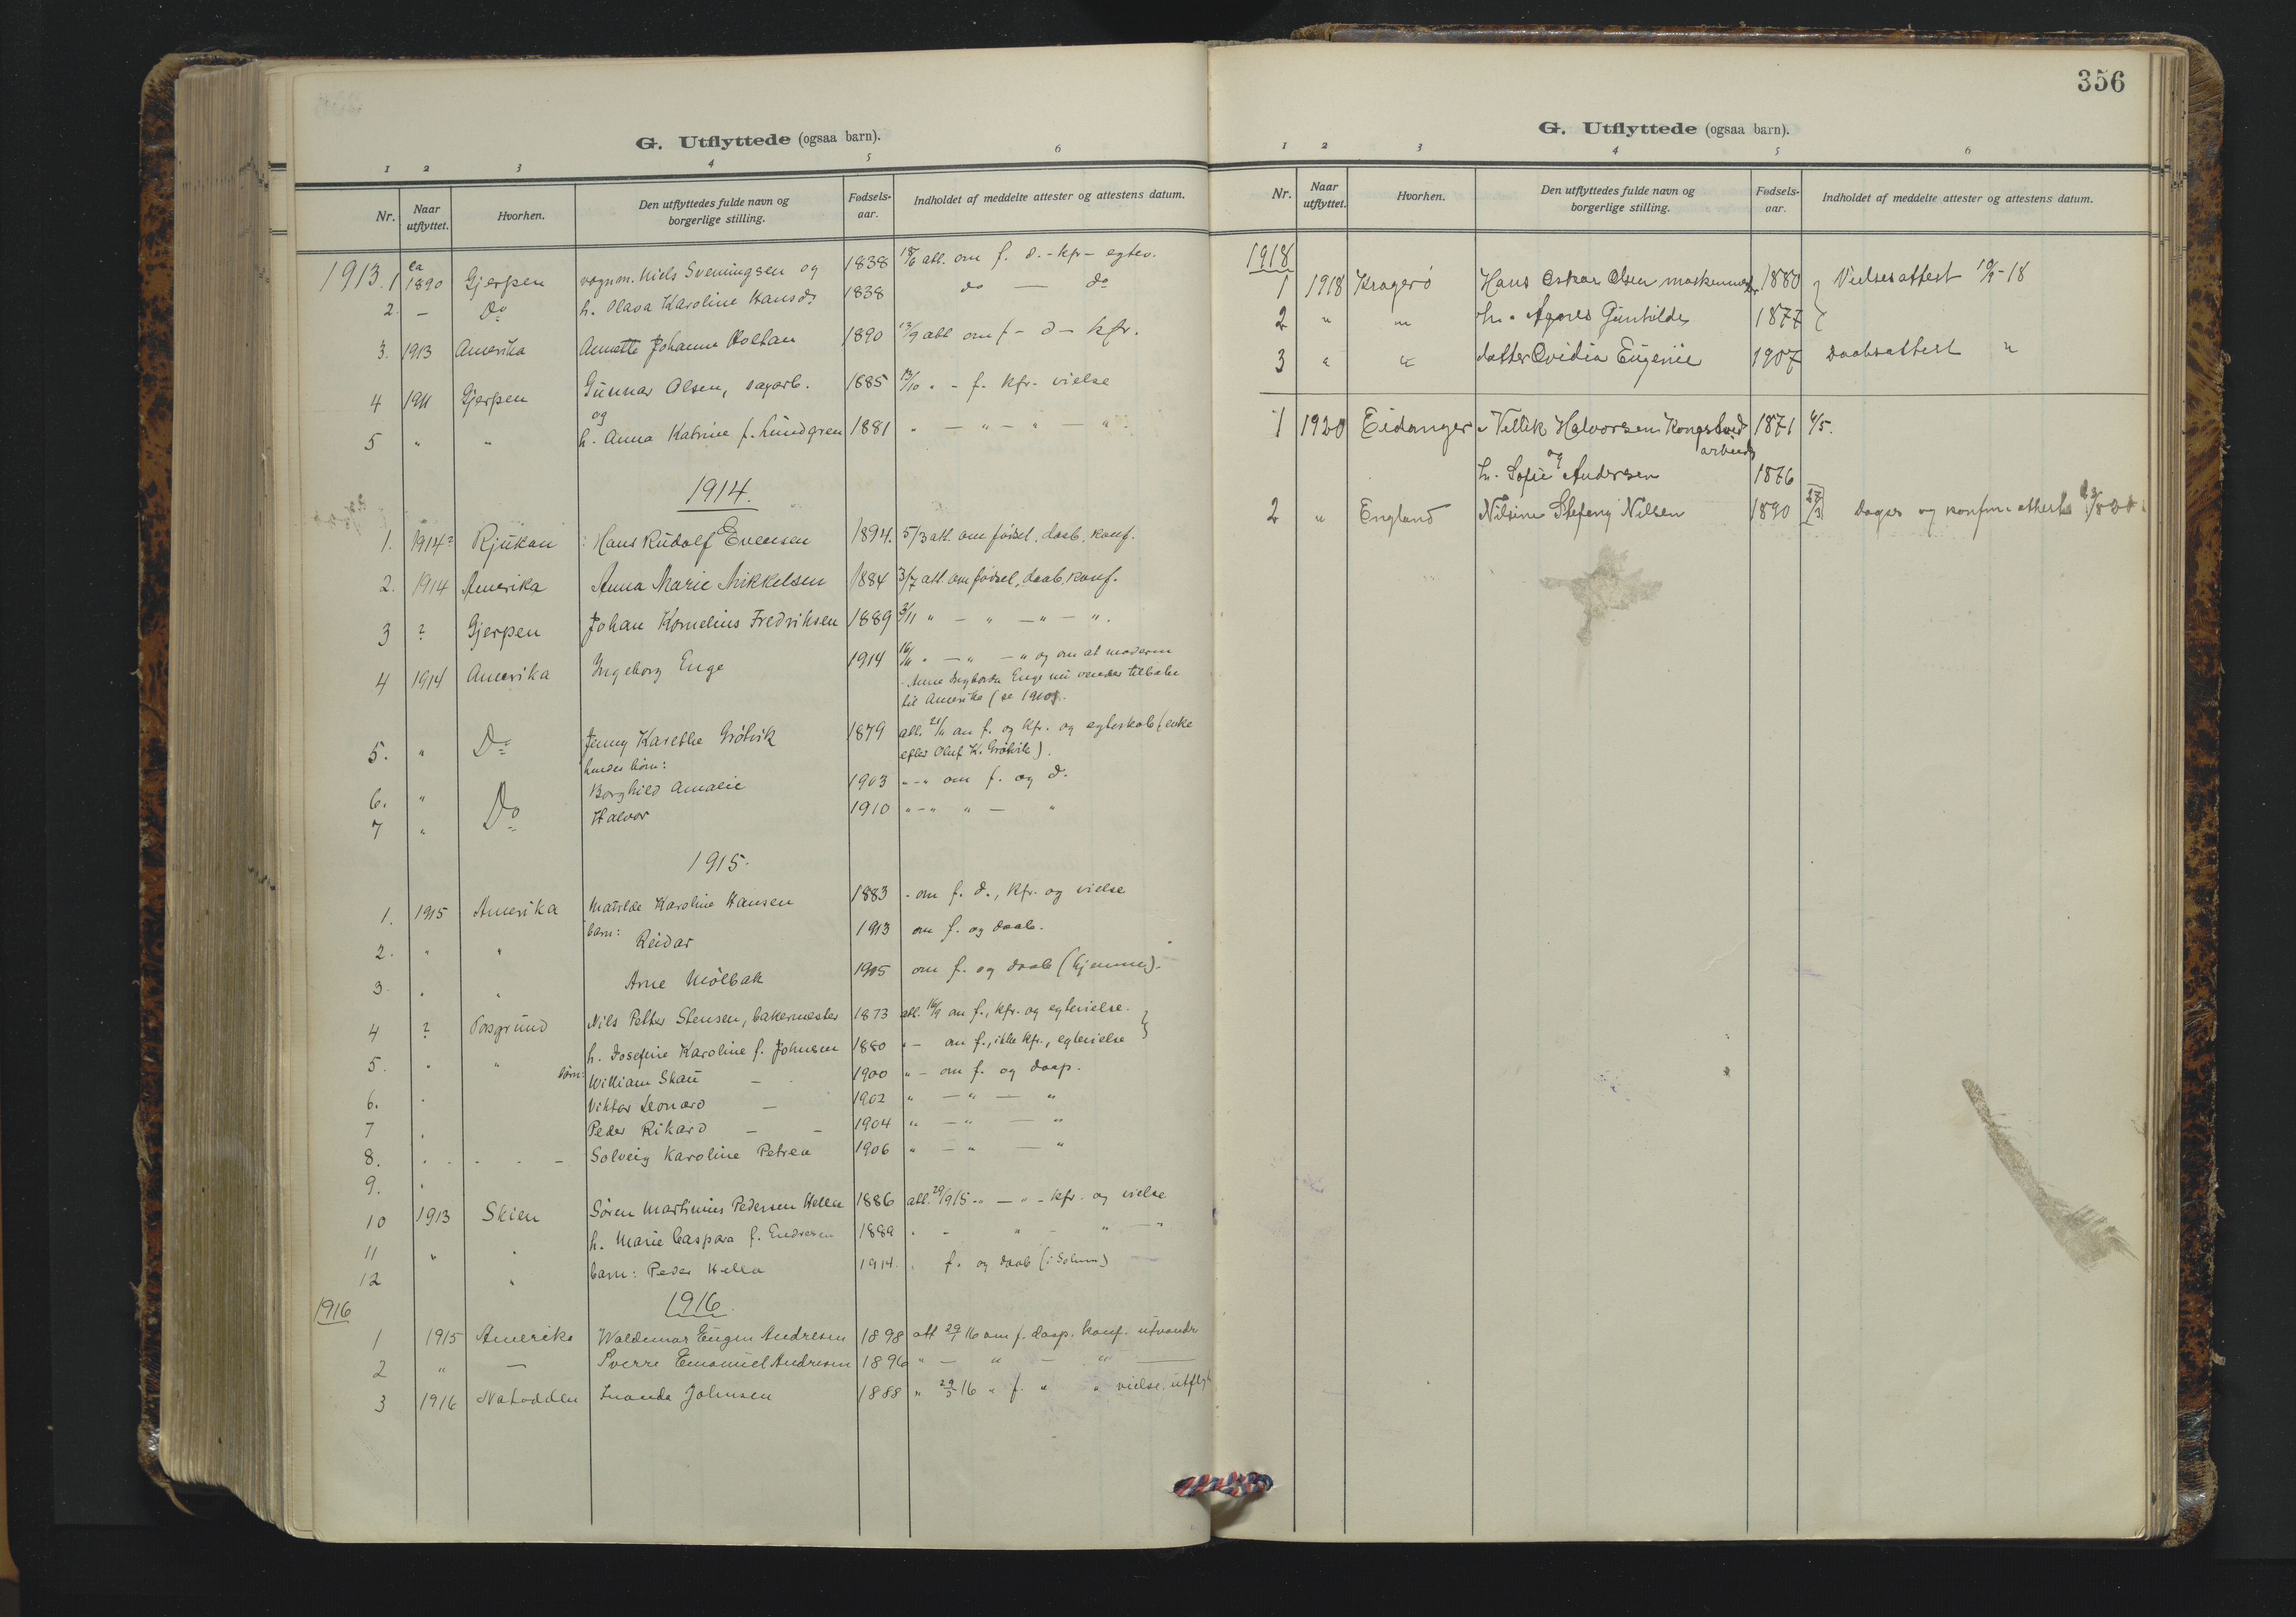 G. Utflyttede (ogsaa barn).
1 2 3 4 5 6
Nr. Naar utflyttet. Hvorhen. Den utflyttedes fulde navn og borgerlige stilling. Fødsels-aar. Indholdet af meddelte attester og attestens datum.
1913. 1 ca 1890 Gjerpen vognm. Niels Sveningsen og 1838 18/6 att. om f. d. - kfr - egtev.
2. — Do h. Olava Karoline Hansdr 1838 do — do
3. 1913 Amerika Annette Johanne Holtan 1890 13/9 att om f - d - kfr.
4 1911 Gjerpen Gunnar Olsen, sagarb. 1885 13/10 " - f. kfr. vielse
og
5 " " h. Anna Katrine f. Lundgren 1881 " — " — " — "
1914.
1. 1914? Rjukan Hans Rudolf Evensen 1894. 5/3 att. om fødsel, daab, konf.
2. 1914 Amerika Anna Marie Mikkelsen 1884 3/7 att om fødsel, daab, konf.
3 ? Gjerpen Johan Kornelius Fredriksen 1889 3/11 " — " — " — ".
4 1914 Amerika Ingeborg Enge 1914 16/11 " — " — " og om at moderen
Enge nu vender tilbake
til Amerika (se
5. " Do Jenny Karethe Grøtvik 1879 att. 21/11 om f. og kfr. og egteskab (enke
efter Oluf K. Grøtvik).
hendes børn:
6. " Borghild Amalie 1903 " - " om f. og d.
7 " Do Halvor 1910 " - " " — "
1915.
1. 1915 Amerika Matilde Karoline Hansen 1883 - om f. d., kfr. og vielse
barn:
2. " " Reidar 1913 om f. og daab.
3. " " Arne Mølbak 1915 om f. og daab (hjemme).
4 ? Porsgrund Nils Petter Stensen, bakermester 1873 att. 16/9 om f., kfr. og egtevielse.
5. " " h. Josefine Karoline f. Johnsen 1880 " - om f., ikke kfr., egtevielse
børn:
6. " William Skau — 1900 " - om f. og daap.
7 " Viktor Leonard — 1902 " — " — "
8. " Peder Rikard — — 1904 " — " — "
9. " Solveig Karoline Petrea 1906 " — " — "
10 1913 Skien Søren Martinius Pedersen Hella 1886 att. 29/9 15 " — " - kfr. og vielse
11 " " h. Marie Caspara f. Endresen 1889 " - " - " — "
12 " barn: Peder Hella 1914. " f. og daab (i Solum)
1916
1916.
1 1915 Amerika Waldemar Eugen Andresen 1898 att 29/1 16 om f. daap. konf. utvandr.
2 " — Sverre Emanuel Andresen 1896 " — " — " —
3 1916 Notodden Johnsen 1888 " 29/5 16 " f. " " vielse, utflyt
356
G. Utflyttede (ogsaa barn).
1 2 3 4 5 6
Nr. Naar utflyttet. Hvorhen. Den utflyttedes fulde navn og borgerlige stilling. Fødsels-aar. Indholdet af meddelte attester og attestens datum.
1918
1 1918 Kragerø Hans Oskar Olsen 1880 Vielsesattest -18
2 " " h. Agnes Gunhilde 1877
3 " " datter Ovidia Eugenie 1907 Daabsattest "
1 1920 Eidanger Halvorsen 1871 4/5.
arbeider
og
h. Sofie Andersen 1876
2 " England Nilsine Stefany Nilsen 1890 27/3 og konfm. attest